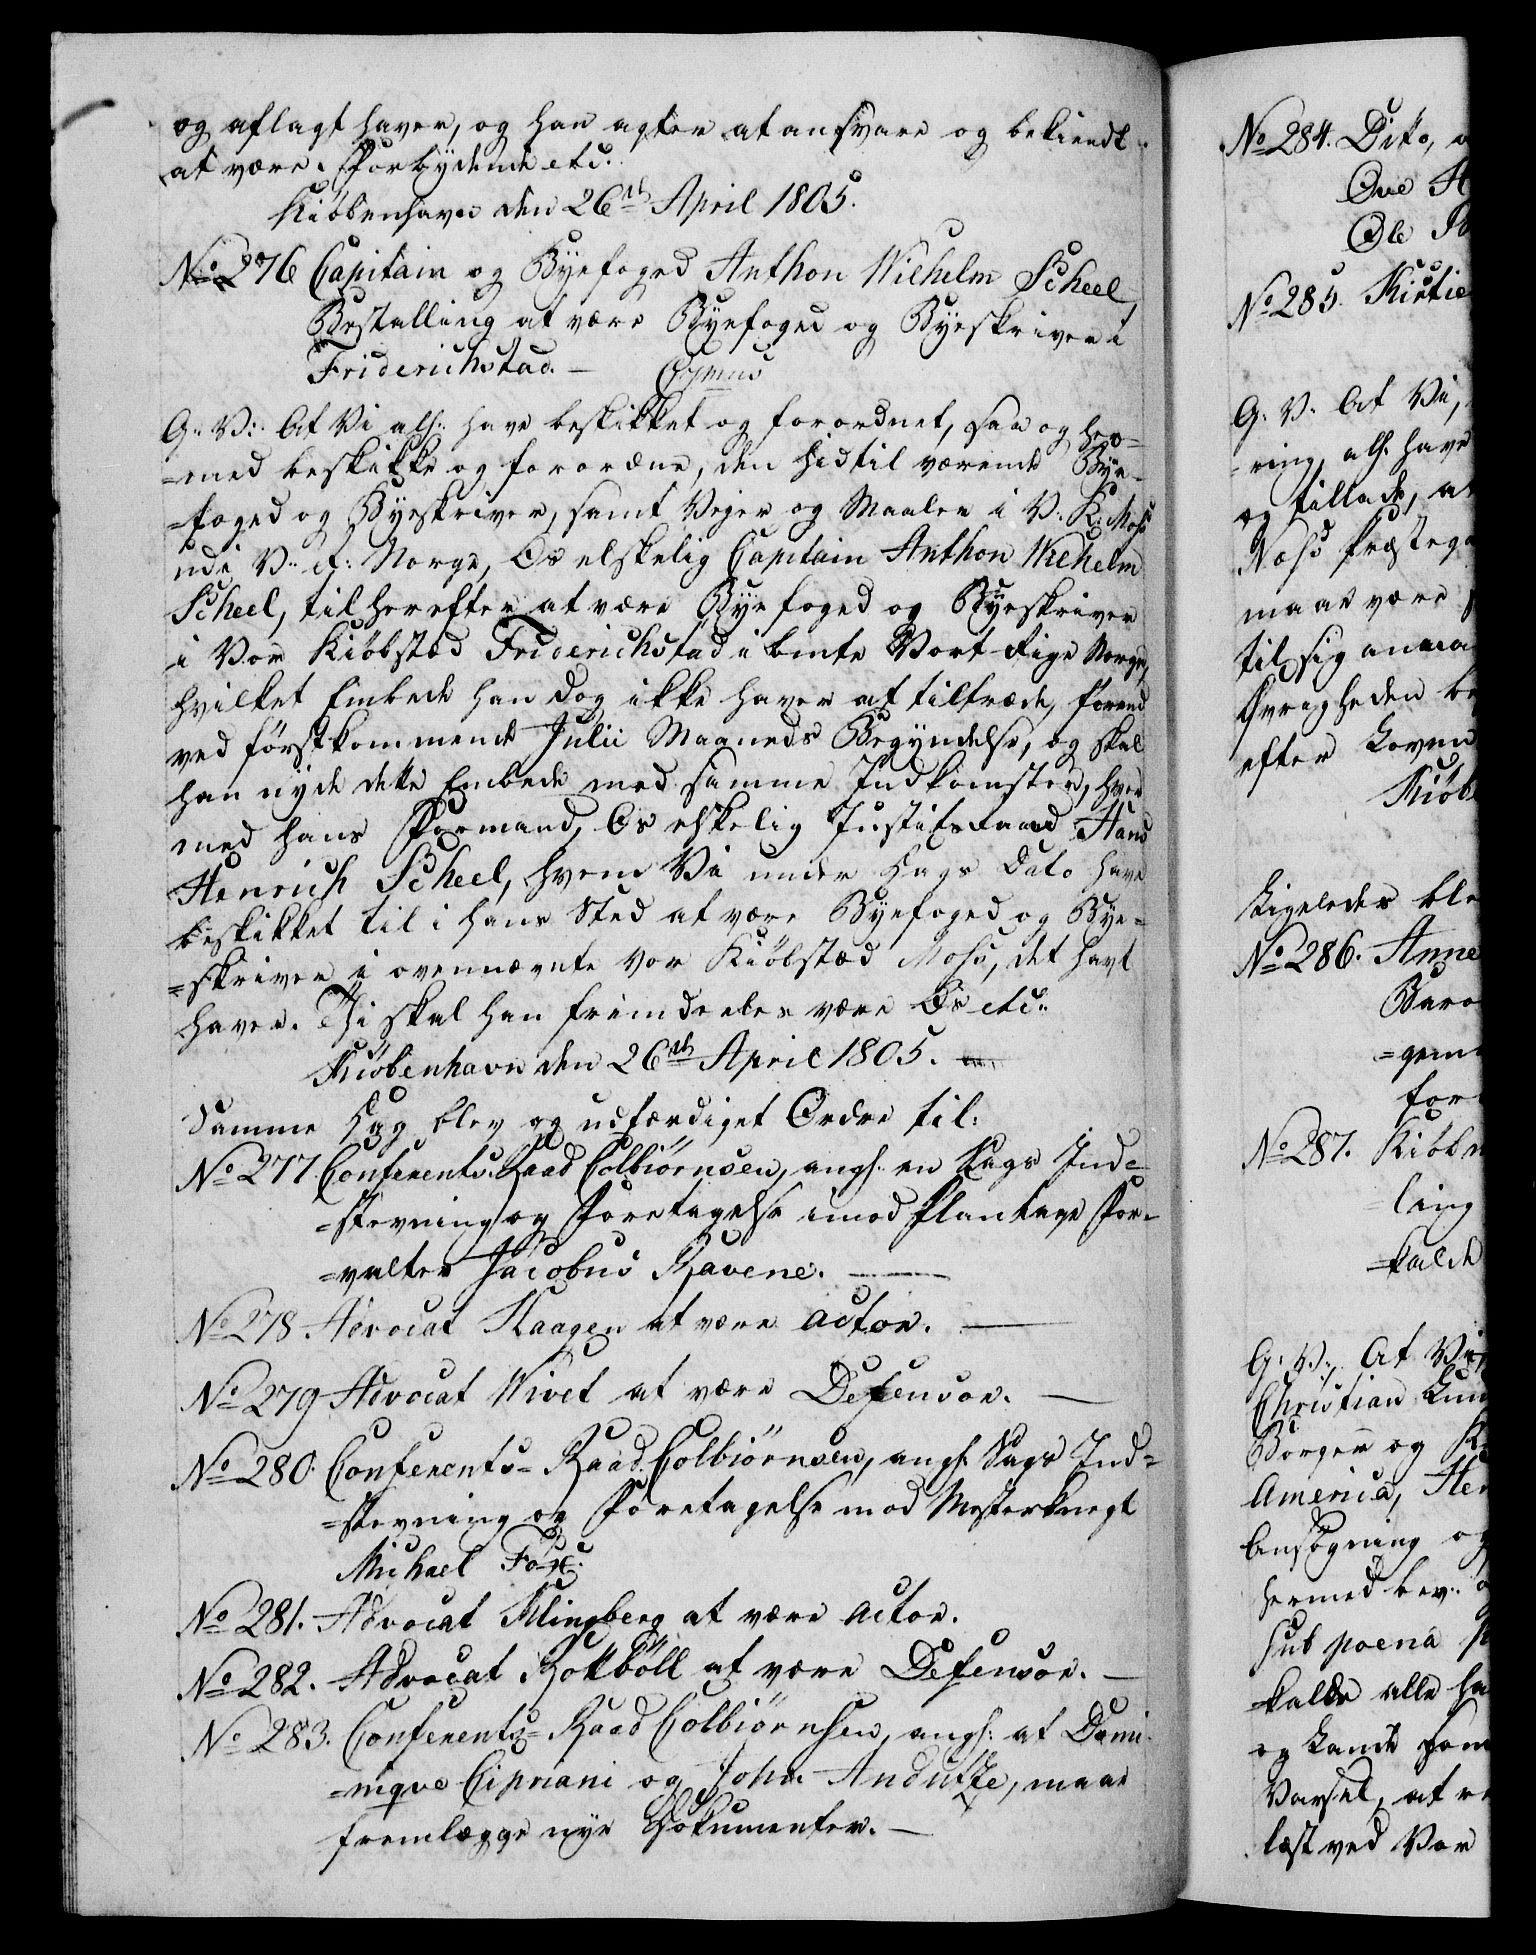 og aflagt haver, og han agter at ansvare og bekiendt
at være. Forbydende etc.
Kiøbenhavn den 26de April 1805.
No 276 Capitain og Byefoged Anthon Wilhelm Scheel,
Bestalling at være Byefoged og Byeskriver i
Friderichstad. —
G: V: At Vi alh: have beskikket og forordnet, saa og her=
=med beskikke og forordne, den hidtil værende Bye=
=foged og Byeskriver, samt Vejer og Maaler i V: K: Moss
udi V: R: Norge, Os elskelig Capitain Anthon Wilhelm
Scheel, til herefter at være Byefoged og Byeskriver
i Vor Kiøbstad Friderichstad i bmte Vort Rige Norge,
hvilket Embede han dog ikke haver at tiltræde, forend
ved førstkommende Julii Maaneds Begyndelse, og skal
han nyde dette Embede med samme Indkomster, hvor
med hans Formand, Os elskelig Justitsraad Hans
Henrich Scheel, hvem Vi under Dags Dato have
beskikket til i hans Sted at være Byefoged og Bye=
=skriver i ovennævnte Vor Kiøbstæd Moss, det havt
haver. Thi skal han fremdeeles være Os etc:
Kiøbenhavn den 26de April 1805. —
Samme Dag blev og udfærdiget Ordre til:
No 277. Conferents-Raad Colbiørnsen, angh: en Sags Ind=
=stevning og Foretagelse imod Plantage For=
=valter Jacobus Ravene. —
No 278. Advocat Haagen at være Actor. —
No 279 Advocat Wivet at være Defensor. —
No 280. Conferents= Raad Colbiørnsen, angh: Sags Ind=
=stevning og Foretagelse mod Mesterknegt
Michael Fox.
No 281. Advocat Klingberg at være Actor.
No 282. Advocat Rottbøll at være Defensor. —
No 283. Conferents= Raad Colbiørnsen, angh: at Domi=
=niqve Cipriani og John Andutze, maae
fremlægge nye Dokumenter. —
No 284. Ditto, a
Ove H
Ole
No 285. Kirtie
G: V: At Vi,
=ring, alh: have
og tillade, at
Voss Præstega
maae være
til sig anna
Øvrigheden be
efter Loven
Kiøb
Ligeledes ble
No 286. Anne
Baro
=gem
for
No 287. Kiøbm
ling
=kalde
G: V: At Vi,
Christian Lun
Borger og K
America, Hen
Ansøgning og
hermed bev: o
sub poena
=kalde alle ha
og Lande som
Varsel, at re
læst ved Vor